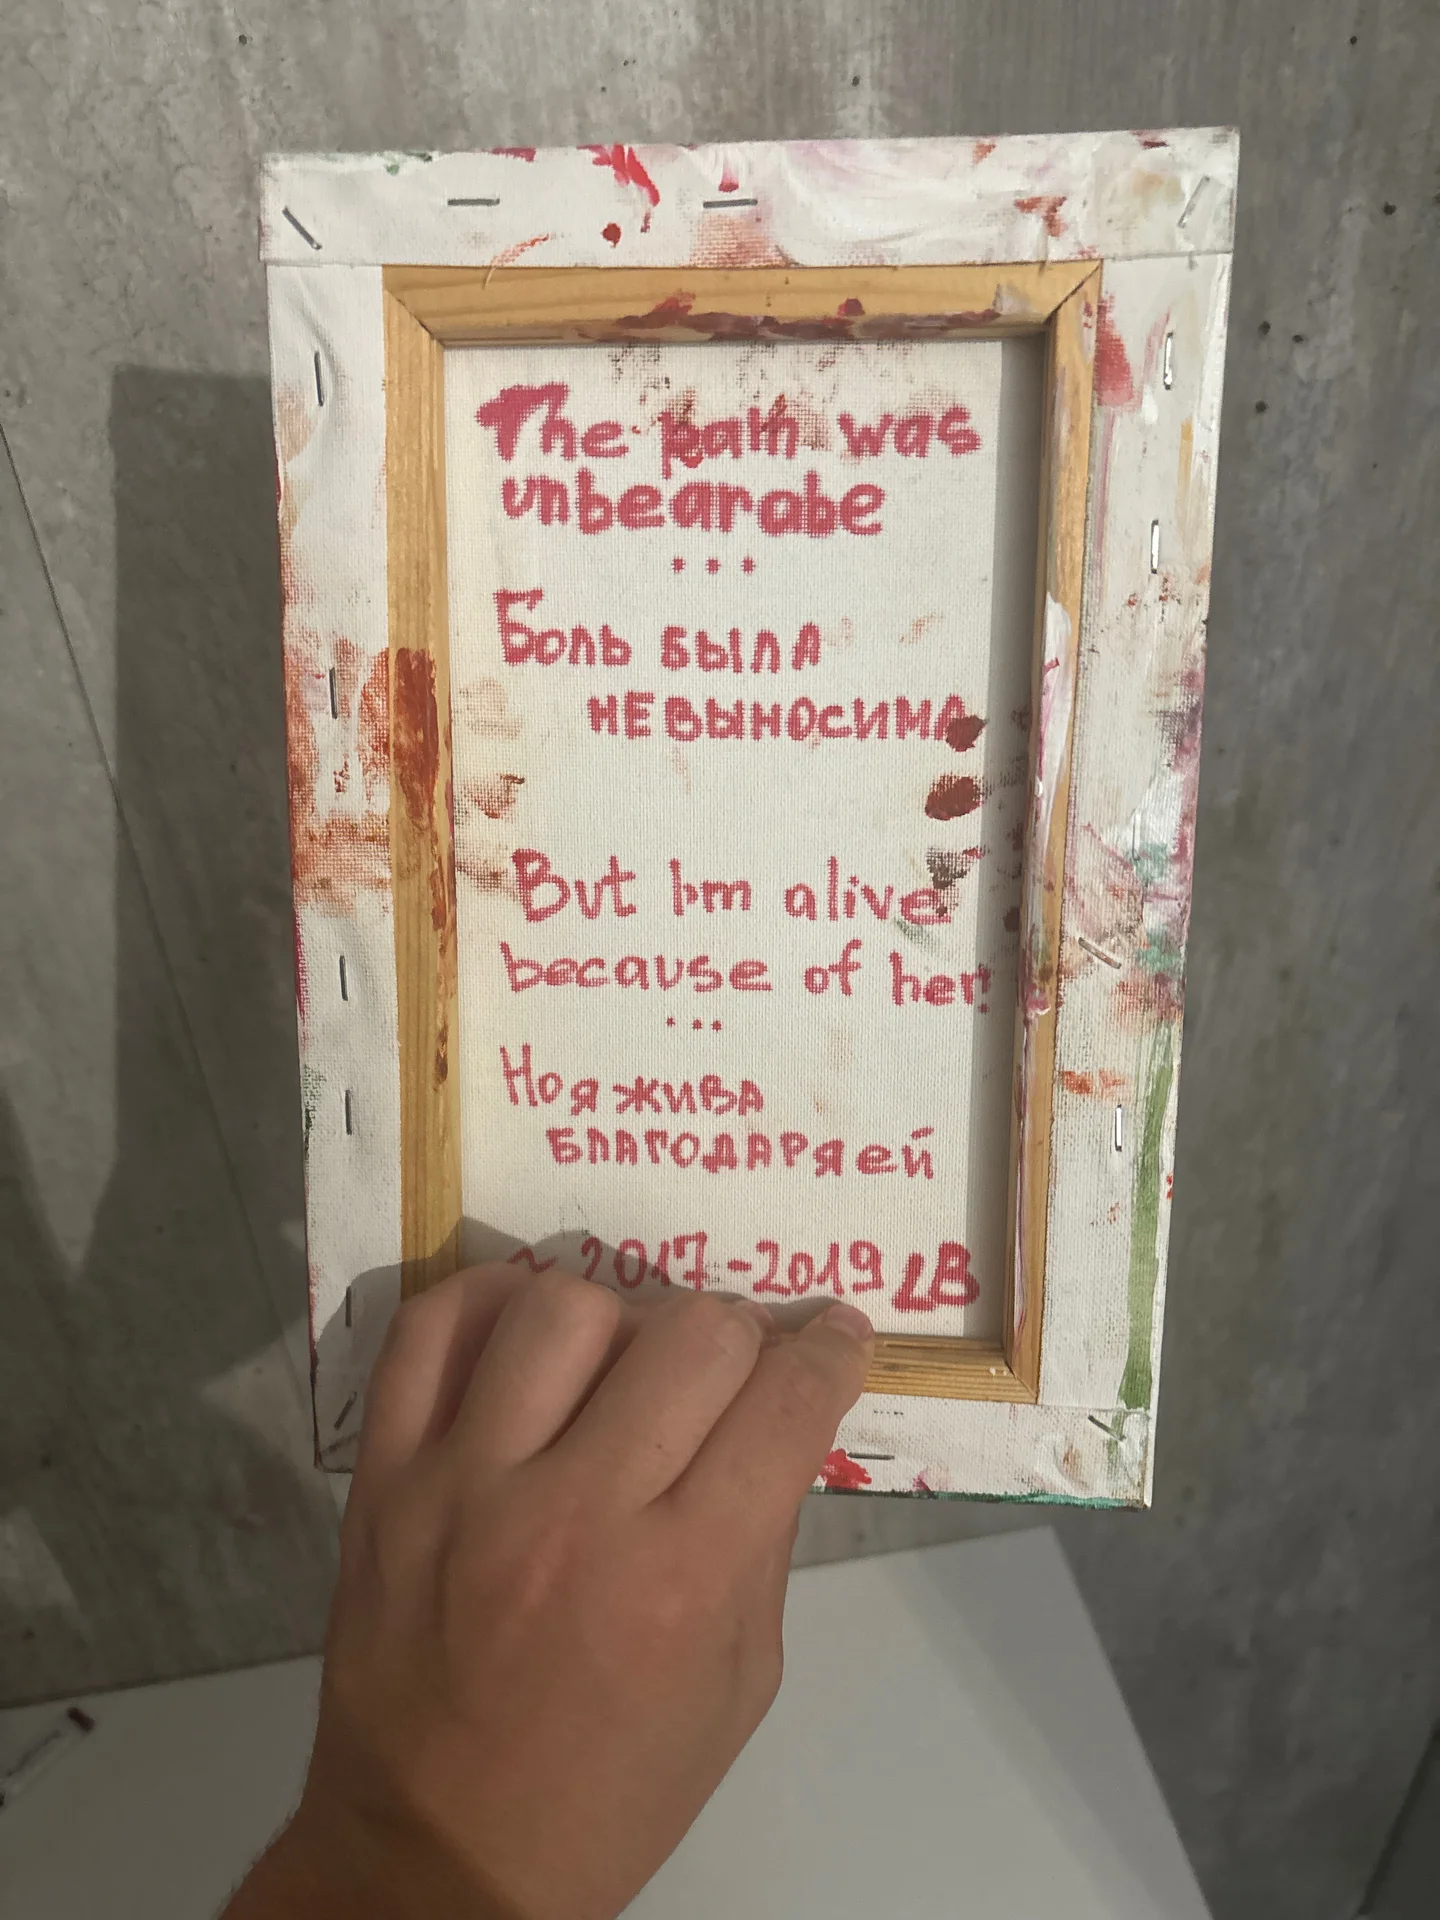 The pain was
unbearabe
...
Боль была
невыносима
But I'm alive
because of her!
...
Но я жива
благодаря ей
~ 2017-2019 LB